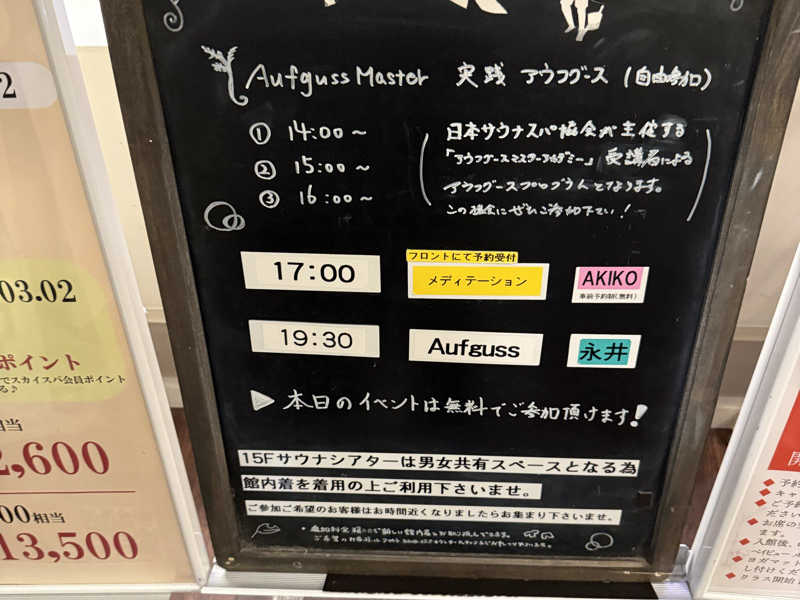 Aufguss Master 実践 アウフグース (自由参加)
① 14:00～
② 15:00～
③ 16:00～
日本サウナスパ協会が主催する
「アウフグースマスターアカデミー」受講者による
アウフグースプログラムとなります。
この機会にぜひご参加下さい！
17:00
フロントにて予約受付
メディテーション
AKIKO
事前予約制(無料)
19:30
Aufguss
永井
▷ 本日のイベントは無料でご参加頂けます！
15Fサウナシアターは男女共有スペースとなる為
館内着を着用の上ご利用下さいませ。
ご参加ご希望のお客様はお時間近くなりましたらお集まり下さいませ。
2
03.02
ポイント
でスカイスパ会員ポイント
る♪
相当
2,600
00相当
13,500
開
◆予約
◆キャ
ださい
◆ご予
◆お席の
ます。
◆入館後、
ベイビュー
◆ヨガマット
し付けくだ
◆クラス開始